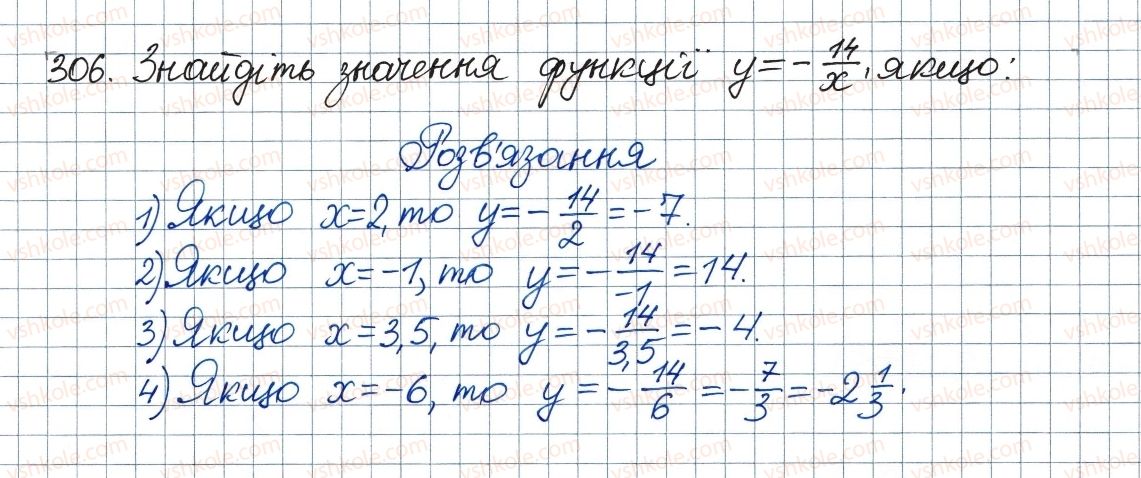 306. Знайдіть значення функції y = - 14/x, якщо:
Розв'язання
1) Якщо x=2, то y = - 14/2 = -7.
2) Якщо x=-1, то y = - 14/-1 = 14.
3) Якщо x=3,5, то y = - 14/3,5 = -4.
4) Якщо x=-6, то y = - 14/6 = - 7/3 = -2 1/3.